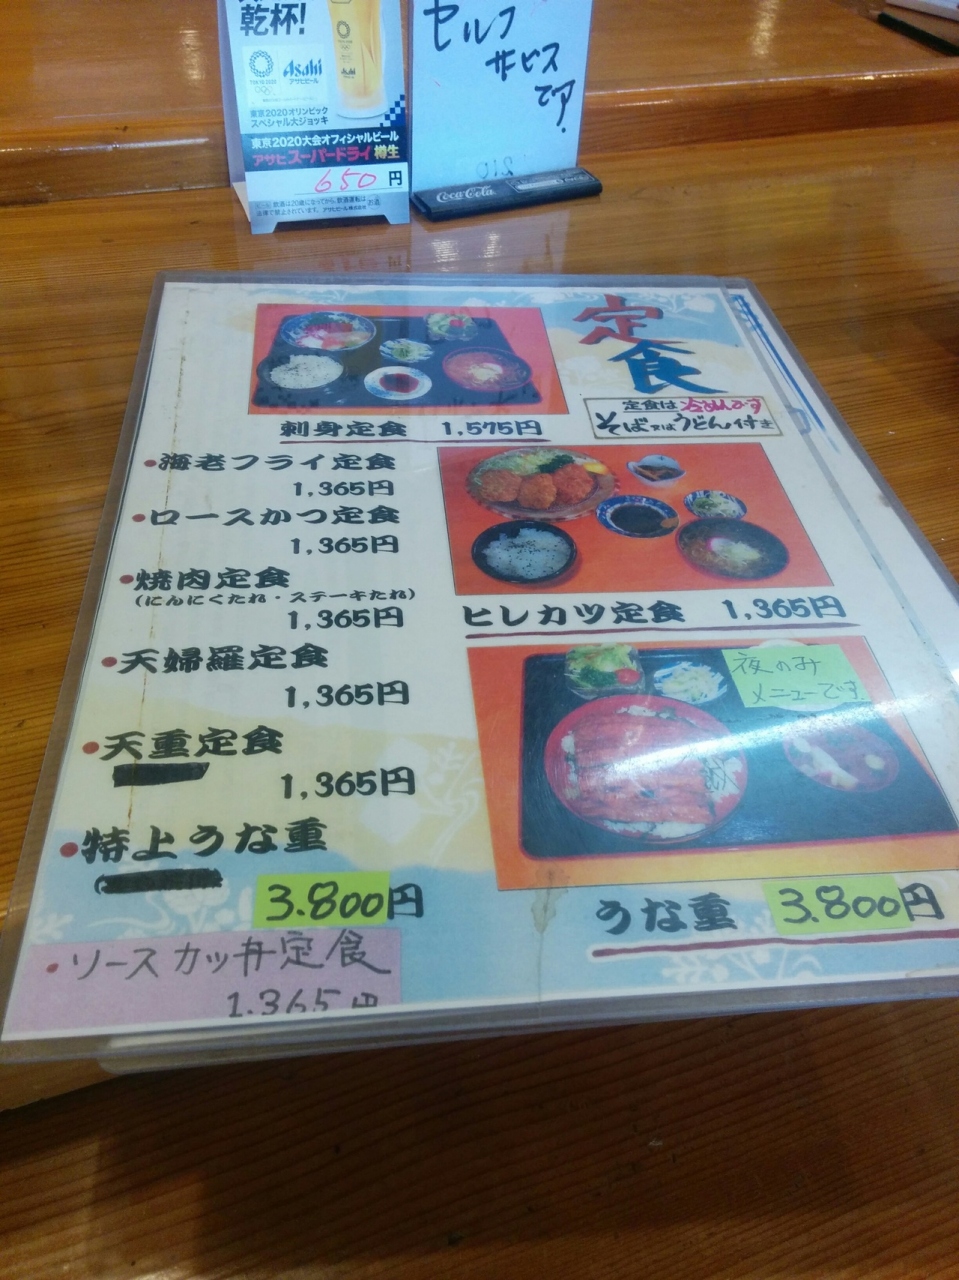 乾杯!
TOKYO 2020
Asahi
アサヒビール
東京2020オリンピック
スペシャル大ジョッキ
東京2020大会オフィシャルビール
アサヒスーパードライ 樽生
650円
セルフ
サービス
です
Coca-Cola
定食
定食は冷めんです
そば又はうどん付き
刺身定食 1,575円
・海老フライ定食
1,365円
・ロースかつ定食
1,365円
・焼肉定食
(にんにくたれ・ステーキたれ)
1,365円
・天婦羅定食
1,365円
・天重定食
1,365円
・特上うな重
3.800円
・ソースカツ丼定食
1.365円
ヒレカツ定食 1,365円
夜のみ
メニューです
うな重 3.800円